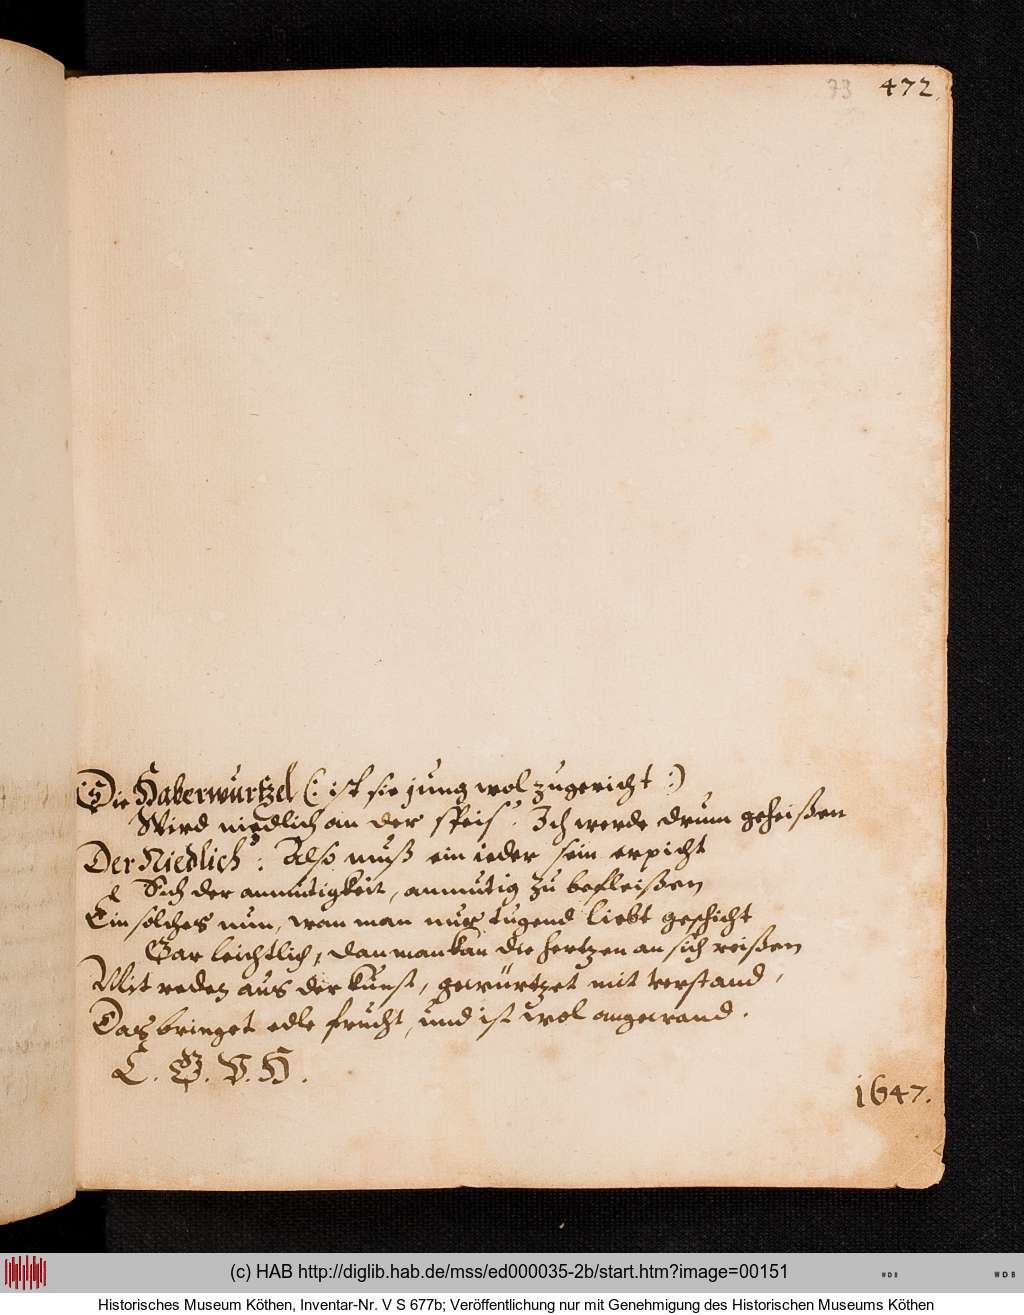 73 472.
Die Haberwurtzel (: ist sie jung wol zugericht :)
Wird niedlich an der speis'. Ich werde drum geheißen
Der Niedlich: Also muß ein ieder sein erpicht
Sich der anmutigkeit, anmutig zu befleißen
Ein solches nun, wan man nur tugend liebt geschicht
Gar leichtlich, dan man kan die hertzen an sich reißen
Mit reden aus der kunst, gewürtzet mit verstand,
Das bringet edle frucht, und ist wol angewand.
C. G. V. H.
1647.
(c) HAB http://diglib.hab.de/mss/ed000035-2b/start.htm?image=00151
WDB
WDB
Historisches Museum Köthen, Inventar-Nr. V S 677b; Veröffentlichung nur mit Genehmigung des Historischen Museums Köthen